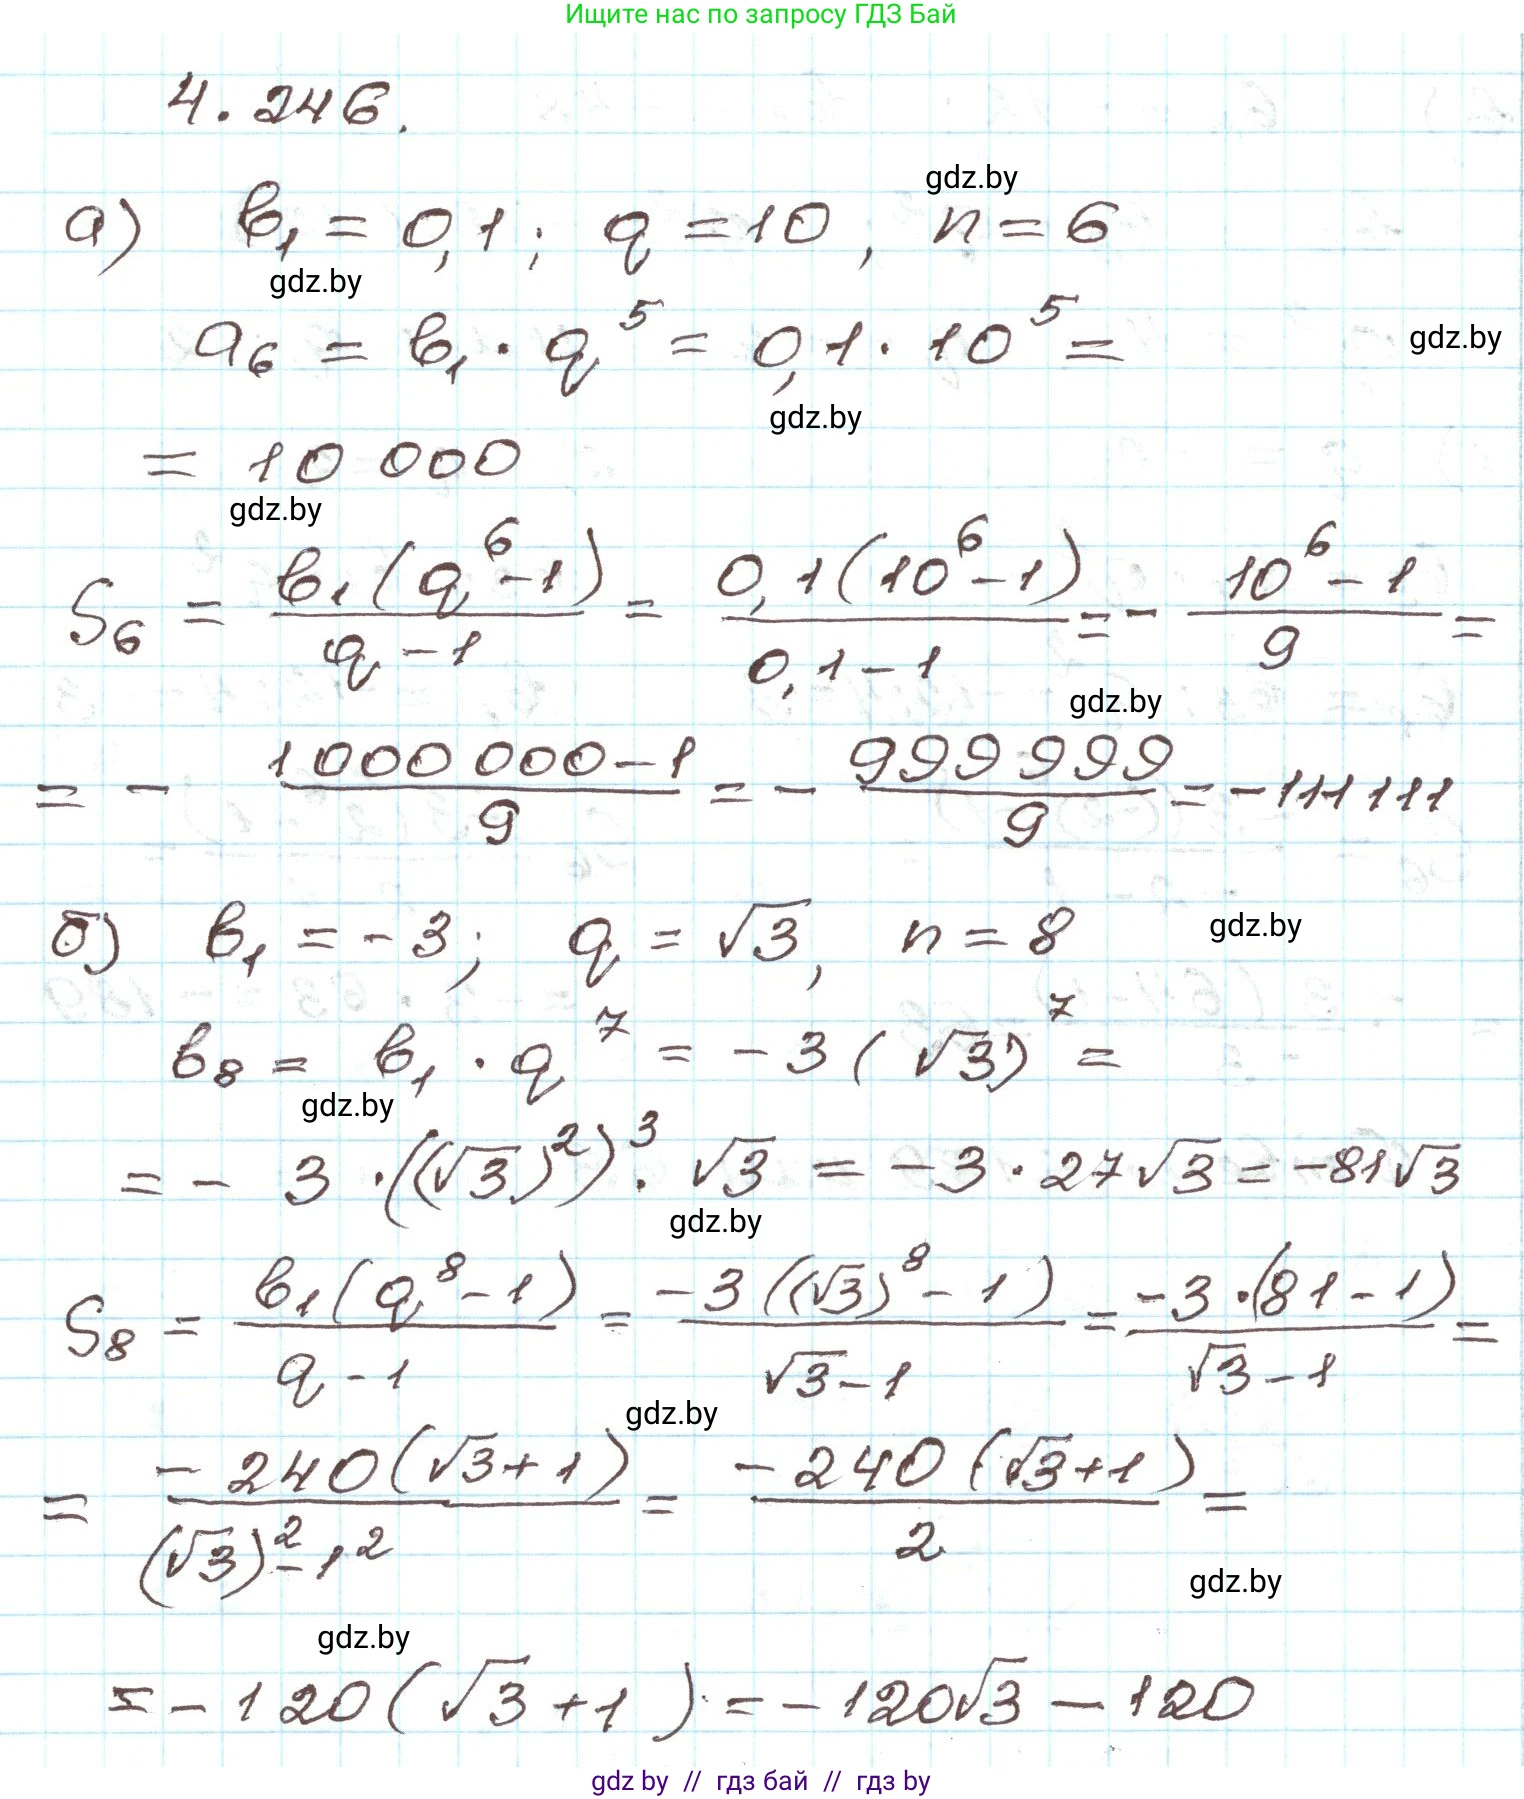 Ищите нас по запросу ГДЗ Бай
4.246.
gdz.by
а) b₁ = 0,1; q = 10, n = 6
gdz.by
a₆ = b₁ · q⁵ = 0,1 · 10⁵ =
gdz.by
gdz.by
= 10 000
gdz.by
S₆ = b₁(q⁶-1)/(q-1) = 0,1(10⁶-1)/(0,1-1) = - (10⁶-1)/9 =
gdz.by
= - (1 000 000-1)/9 = - 999 999/9 = -111 111
б) b₁ = -3; q = √3, n = 8
gdz.by
b₈ = b₁ · q⁷ = -3(√3)⁷ =
gdz.by
= - 3 · ((√3)²)³ · √3 = -3 · 27√3 = -81√3
gdz.by
S₈ = b₁(q⁸-1)/(q-1) = -3((√3)⁸-1)/(√3-1) = -3·(81-1)/(√3-1) =
gdz.by
= -240(√3+1)/((√3)²-1²) = -240(√3+1)/2 =
gdz.by
gdz.by
= -120(√3+1) = -120√3 - 120
gdz by // гдз бай // гдз by